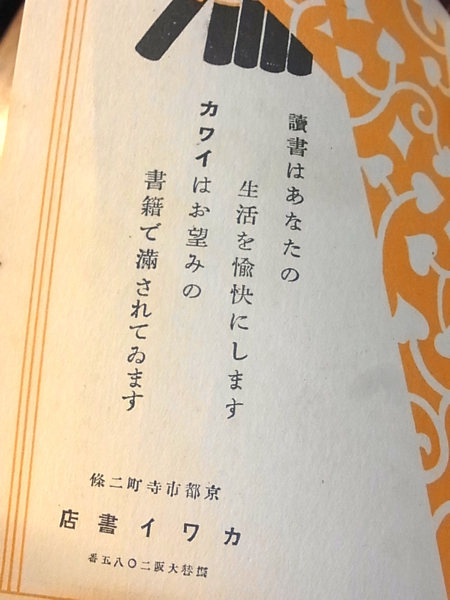 讀書はあなたの
生活を愉快にします
カワイはお望みの
書籍で滿されてゐます
京都市寺町二條
カワイ書店
振替大阪二〇八五番